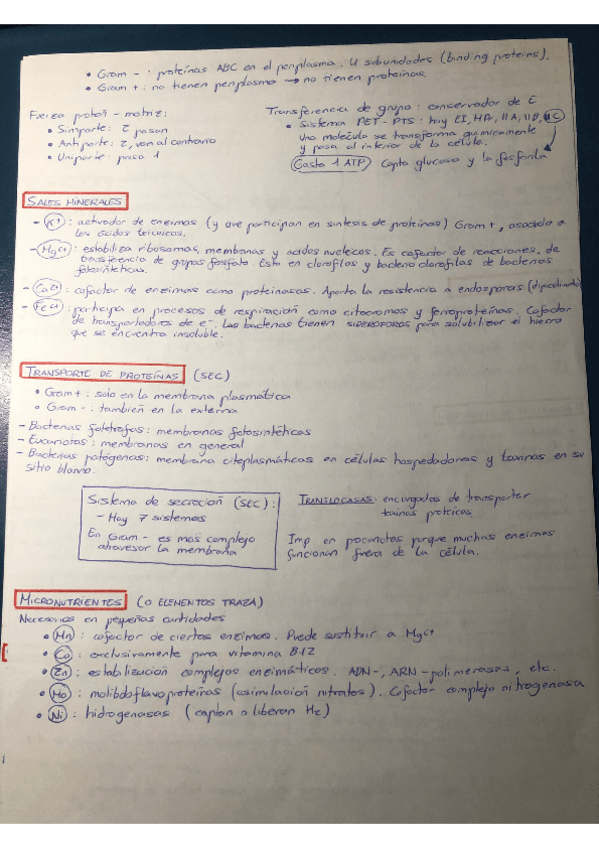 • Gram - : proteínas ABC en el periplasma. U subunidades (binding proteins).
• Gram + : no tienen periplasma → no tienen proteínas.
Fuerza protón - motriz:
• Simporte: 2 pasan
• Antiporte: 2, van al contrario
• Uniporte: pasa 1
Transferencia de grupo: conservador de E
• Sistema PET - PTS: hay EI, HPr, IIA, IIB, IIC
Una molécula se transforma químicamente
y pasa al interior de la célula.
Gasta 1 ATP Capta glucosa y la fosforila
SALES MINERALES
- K+ : activador de enzimas (y que participan en síntesis de proteínas) Gram+, asociado a
los ácidos teicoicos.
- Mg2+ : estabiliza ribosomas, membranas y ácidos nucleicos. Es cofactor de reacciones, de
transferencia de grupos fosfato. Está en clorofilas y bacterio clorofilas de bacterias
fotosintéticas.
- Ca2+ : cofactor de enzimas como proteinasas. Aporta la resistencia a endosporas (dipicolinato)
- Fe2+ : participa en procesos de respiración como citocromos y ferroproteínas. Cofactor
de transportadores de e-. Las bacterias tienen SIDEROFOROS para solubilizar el hierro
que se encuentra insoluble.
TRANSPORTE DE PROTEÍNAS (SEC)
• Gram+ : solo en la membrana plasmática
• Gram - : también en la externa
- Bacterias fotótrofas: membranas fotosintéticas
- Eucariotas: membranas en general
- Bacterias patógenas: membrana citoplasmáticas en células hospedadoras y toxinas en su
sitio blanco.
Sistema de secreción (SEC):
- Hay 7 sistemas
En Gram - es más complejo
atravesar la membrana
TRANSLOCASAS: encargadas de transportar
toxinas proteicas.
Imp en procariotas porque muchas enzimas
funcionan fuera de la célula.
MICRONUTRIENTES (O ELEMENTOS TRAZA)
Necesarios en pequeñas cantidades
• Mn : cofactor de ciertas enzimas. Puede sustituir a Mg2+
• Co : exclusivamente para vitamina B12
• Zn : estabilización complejos enzimáticos. ADN-, ARN-polimerasas, etc.
• Mo : molibdoflavoproteínas (asimilación nitratos). Cofactor complejo nitrogenasa
• Ni : hidrogenasas (captan o liberan H2)